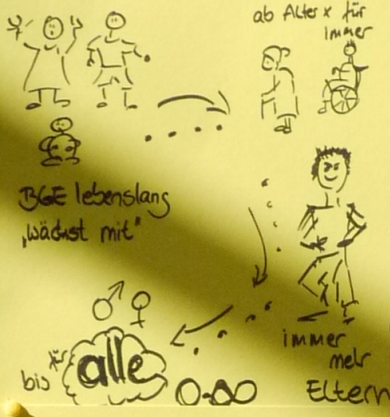 ab Alter x für
immer
BGE lebenslang
„wächst mit"
immer
mehr
Eltern
bis für alle
0-∞